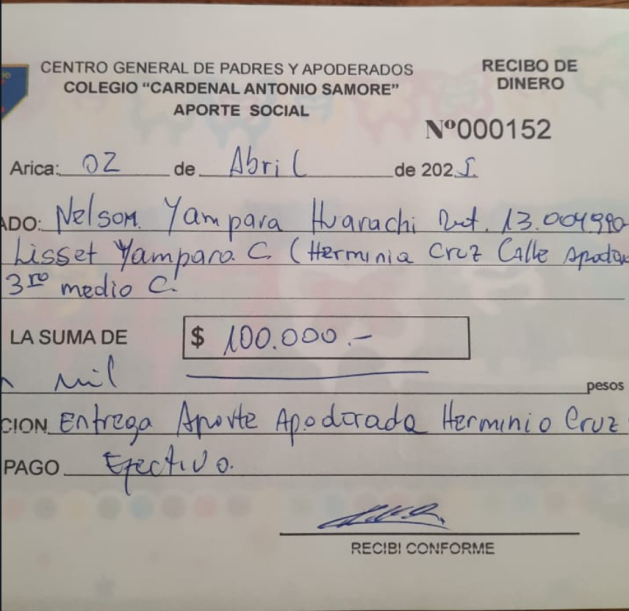 CENTRO GENERAL DE PADRES Y APODERADOS
COLEGIO "CARDENAL ANTONIO SAMORE"
APORTE SOCIAL
RECIBO DE
DINERO
Nº000152
Arica: 02 de Abril de 2025.
ADO: Nelson Yampara Huarachi Rut. 13.004990
Lisset Yampara C. (Herminia Cruz Calle Apodera
3ro medio C.
LA SUMA DE $ 100.000.-
mil pesos
CION Entrega Aporte Apoderada Herminio Cruz
PAGO Efectivo.
RECIBI CONFORME